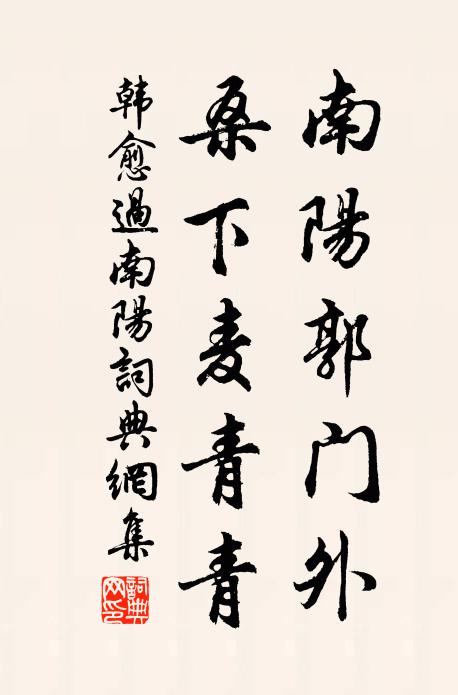 南陽郭门外
桑下麦青青
韩愈過南陽詞典網集
詞典网印